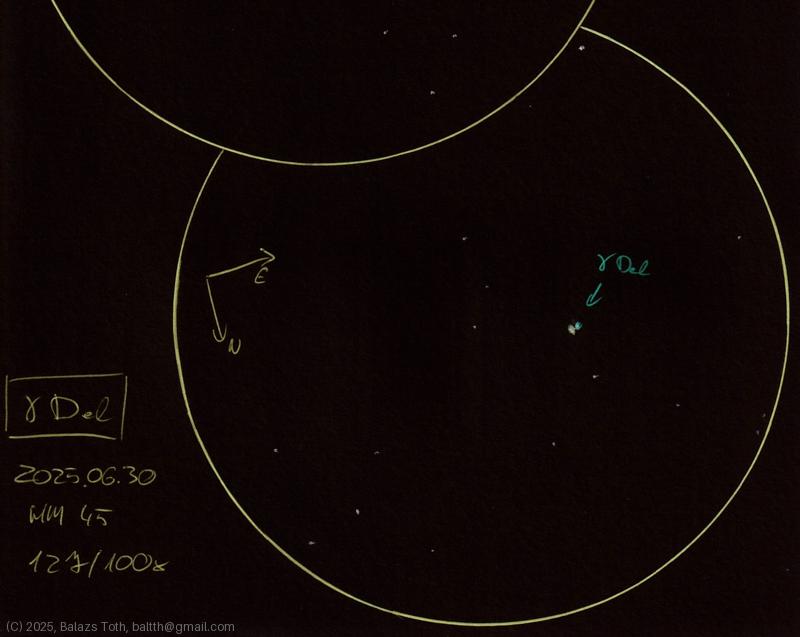 γ Del
E
N
γ Del
2025.06.30
MM 45
127/100x
(C) 2025, Balazs Toth, baltth@gmail.com